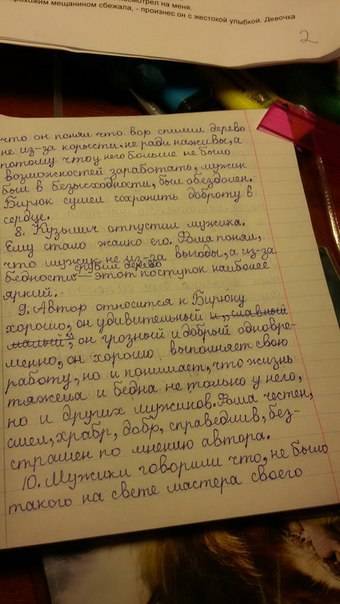 смотрел на меня.
прохожим мещанином сбежала, - произнес он с жестокой улыбкой. Девочка
2
что он понял что вор спилил дерево
не из-за корысти, не ради наживы, а
потому что у него больше не было
возможностей заработать, мужик
был в безысходности, был обездолен.
Бирюк сумел сохранить доброту в
сердце.
8. Кузьмич отпустил мужика.
Ему стало жалко его. Фома понял,
что мужик рубил дерево не из-за выгоды, а из-за
бедности - этот поступок наиболее
яркий.
9. Автор относится к Бирюку
хорошо, он удивительный и
он грозный и добрый одновре-
менно, он хорошо выполняет свою
работу, но и понимает, что жизнь
тяжела и бедна не только у него,
но и других мужиков. Фома честен,
смел, храбр, добр, справедлив, без-
страшен по мнению автора.
10. Мужики говорили что, не было
такого на свете мастера своего